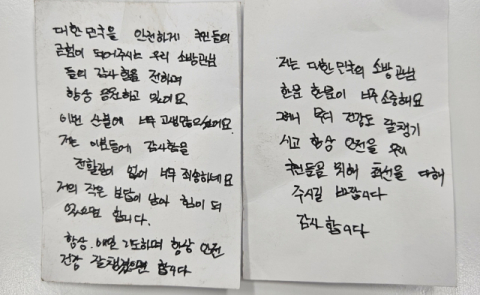 대한민국을 안전하게 국민들의
귀협이 되어주시는 우리 소방관님
들의 감사함을 전하며
항상 응원하고 있어요
이번 산불에 너무 고생많으셨어요
저는 이분들에 감사함을
전할길이 없어 너무 죄송하네요
저의 작은 보답이 남아 힘이 되
었으면 합니다.
항상. 매일 기도하며 항상 안전
건강 잘 챙겼으면 합니다
저는 대한민국의 소방관님
한분 한분이 너무 소중해요
그러니 몸 건강도 잘챙기
시고 항상 안전을 유의
국민들을 위해 최선을 다해
주시길 바랍니다
감사합니다